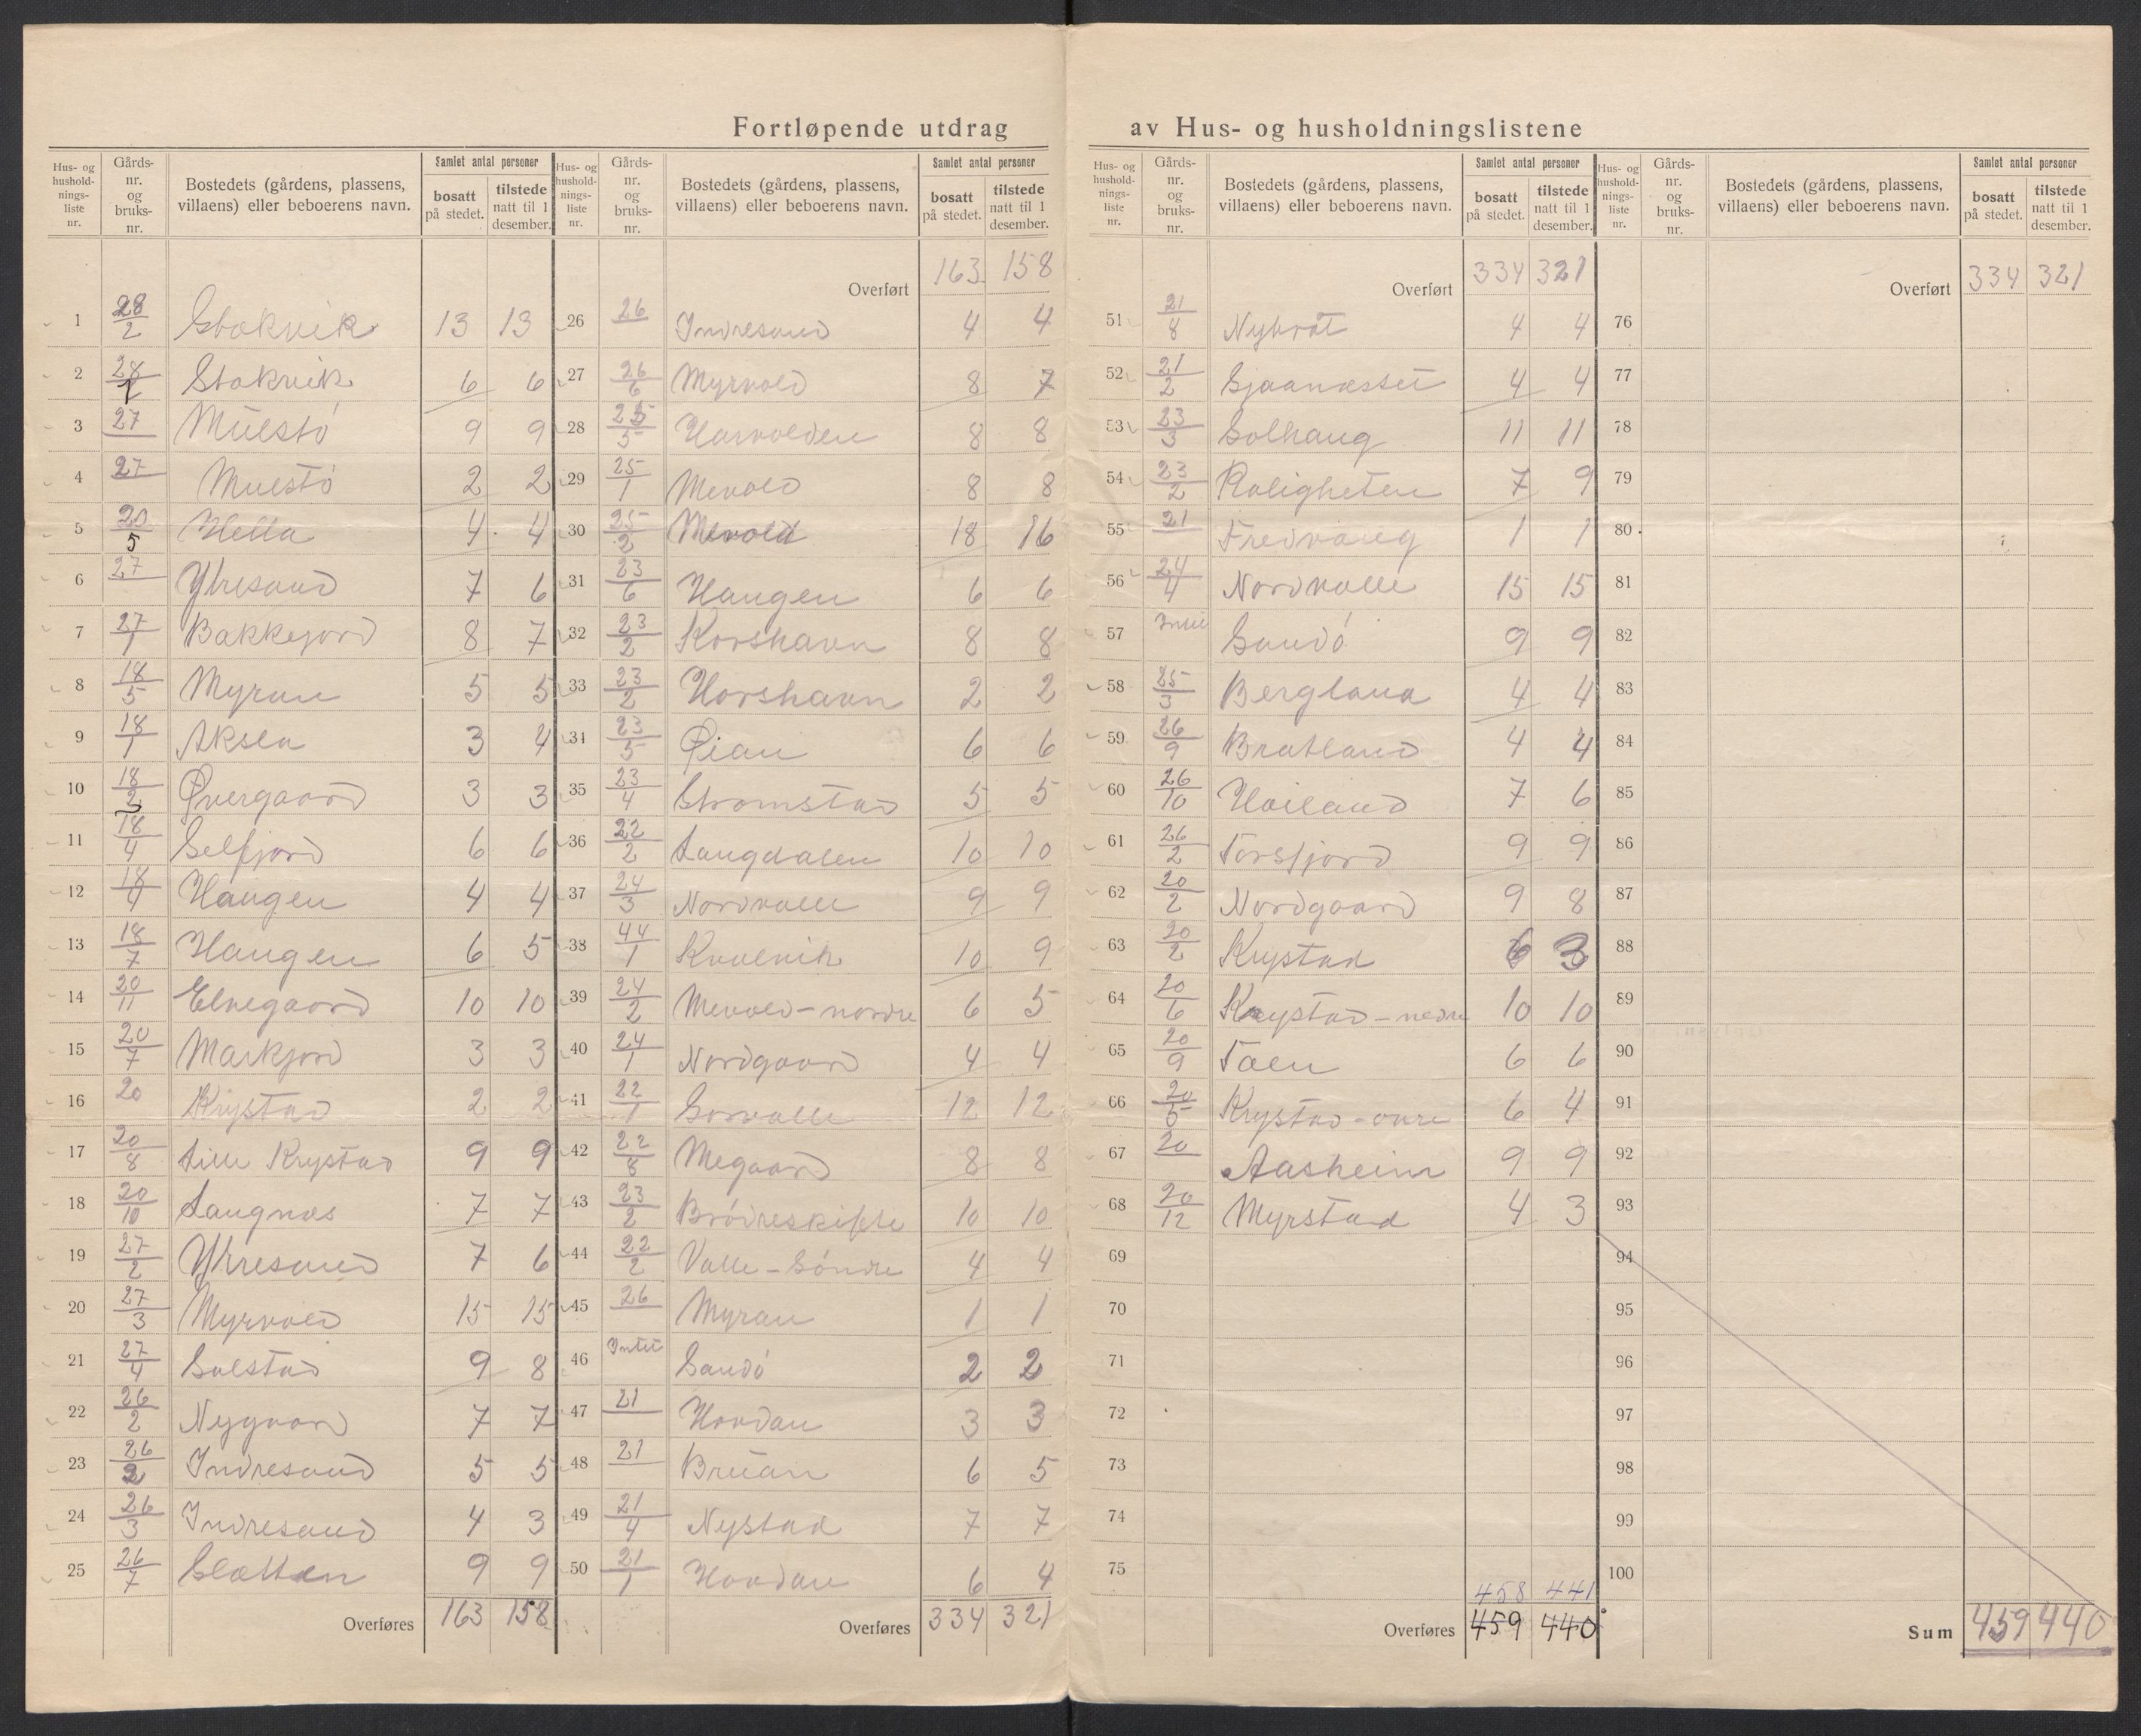 Fortløpende utdrag av Hus- og husholdningslistene
Hus- og husholdningsliste nr. | Gårdsnr. og bruksnr. | Bostedets (gårdens, plassens, villaens) eller beboerens navn. | Samlet antal personer bosatt på stedet. | tilstede natt til 1 desember.
1 28/2 Stokvik 13 13
2 28/1 Stokvik 6 6
3 27 Mulstö 9 9
4 27 Mulstö 2 2
5 20/5 Hella 4 4
6 27 Ytresand 7 6
7 27/1 Bakkejord 8 7
8 18/5 Myran 5 5
9 18/1 Aksla 3 4
10 18/2 Øvergaard 3 3
11 18/4 Selfjord 6 6
12 18/4 Haugen 4 4
13 18/7 Haugen 6 5
14 20/11 Elvegaard 10 10
15 20/7 Markjord 3 3
16 20 Krystad 2 2
17 20/8 Lille Krystad 9 9
18 20/10 Langnes 7 7
19 27/2 Ytresand 7 6
20 27/3 Myrvold 15 15
21 27/4 Solstad 9 8
22 26/2 Nygaard 7 7
23 26/2 Indresand 5 5
24 26/3 Indresand 4 3
25 26/7 Sletten 9 9
Overføres 163 158
Hus- og husholdningsliste nr. | Gårdsnr. og bruksnr. | Bostedets (gårdens, plassens, villaens) eller beboerens navn. | Samlet antal personer bosatt på stedet. | tilstede natt til 1 desember.
Overført 163 158
26 26 Indresand 4 4
27 26/6 Myrvold 8 7
28 25/5 Harvolden 8 8
29 25/1 Mevold 8 8
30 25/2 Mevold 18 16
31 23/6 Haugen 6 6
32 23/2 Korshavn 8 8
33 23/2 Horshavn 2 2
34 23/5 Øian 6 6
35 23/4 Stromstad 5 5
36 22/2 Langdalen 10 10
37 24/3 Nordvalle 9 9
38 44/1 Kvalvik 10 9
39 24/2 Mevold-nordre 6 5
40 24/1 Nordgaard 4 4
41 22/1 Sorvalle 12 12
42 22/8 Megaard 8 8
43 23/2 Brödreskifte 10 10
44 22/2 Valle-Söndre 4 4
45 26 Myran 1 1
46 Intet Sandö 2 2
47 21 Hovdan 3 3
48 21 Bruan 6 5
49 21/4 Nystad 7 7
50 21/1 Hovdan 6 4
Overføres 334 321
Hus- og husholdningsliste nr. | Gårdsnr. og bruksnr. | Bostedets (gårdens, plassens, villaens) eller beboerens navn. | Samlet antal personer bosatt på stedet. | tilstede natt til 1 desember.
Overført 334 321
51 21/8 Nybrøt 4 4
52 21/2 Sjaanesset 4 4
53 23/3 Solhaug 11 11
54 23/2 Roligheten 7 9
55 21 Fredvang 1 1
56 24/4 Nordvalle 15 15
57 Sandö 9 9
58 25/3 Bergland 4 4
59 26/9 Bratland 4 4
60 26/10 Hoiland 7 6
61 26/2 Torsfjord 9 9
62 20/2 Nordgaard 9 8
63 20/2 Krystad 6 3
64 20/6 Krystad-nedre 10 10
65 20/9 Taen 6 6
66 20/5 Krystad-ovre 6 4
67 20 Aasheim 9 9
68 20/12 Myrstad 4 3
69
70
71
72
73
74
75
458 441
Overføres 459 440
Hus- og husholdningsliste nr. | Gårdsnr. og bruksnr. | Bostedets (gårdens, plassens, villaens) eller beboerens navn. | Samlet antal personer bosatt på stedet. | tilstede natt til 1 desember.
Overført 334 321
76
77
78
79
80
81
82
83
84
85
86
87
88
89
90
91
92
93
94
95
96
97
98
99
100
Sum 459 440